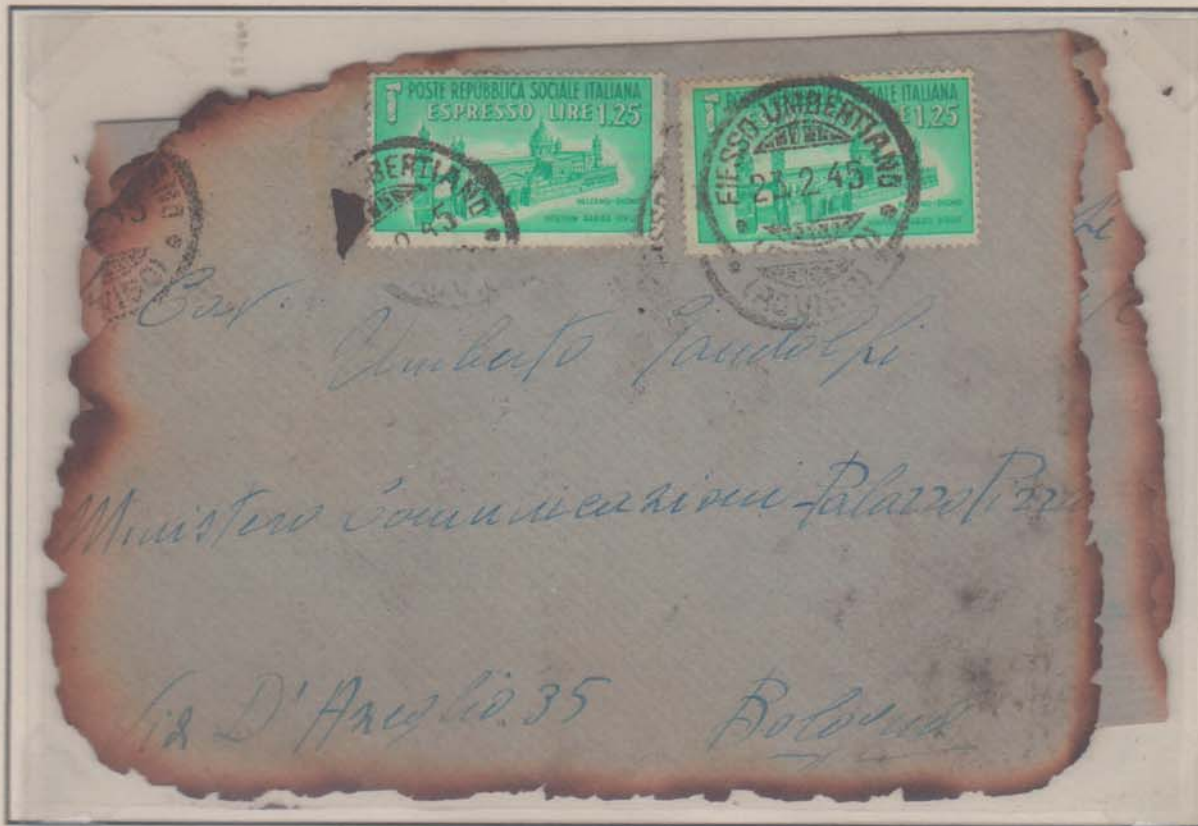 POSTE REPUBBLICA SOCIALE ITALIANA
ESPRESSO LIRE 1.25
PALERMO-DUOMO
ALE ITALIANA
1.25
BERTIANO
45
FIESSO UMBERTIANO
23.2.45
(ROVIGO)
Umberto Gandolfi
Ministero Comunicazioni - Palazzo Pizza
Via D'Azeglio 35
Bologna